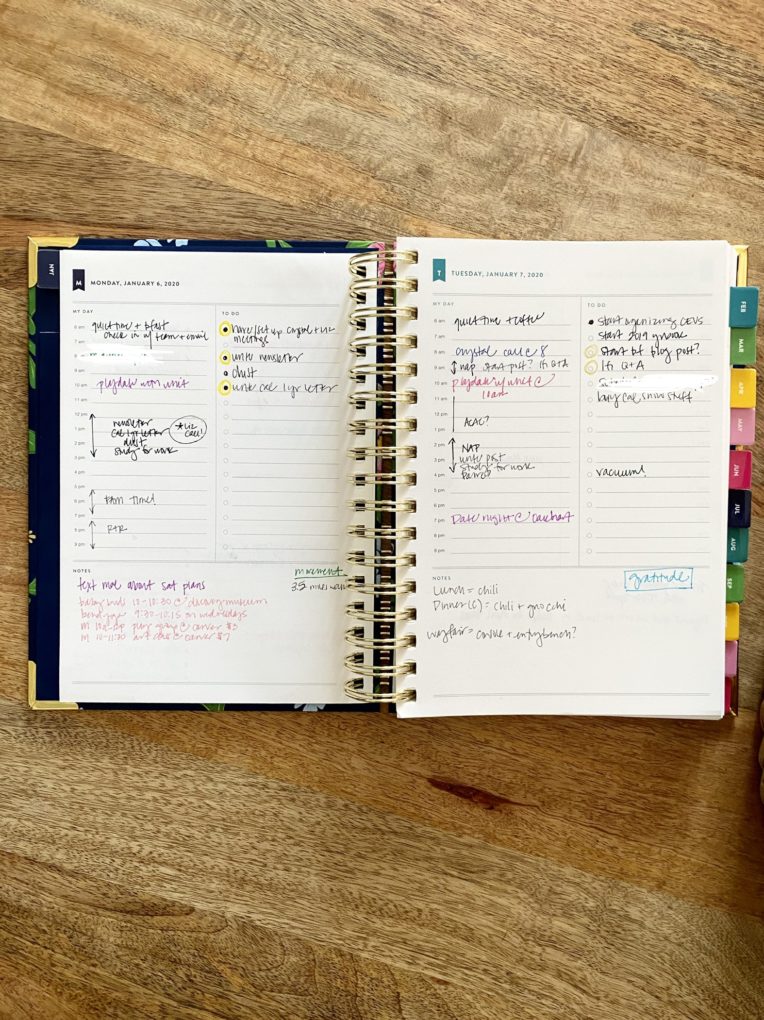 JAN
M MONDAY, JANUARY 6, 2020
MY DAY
6 am quiet time + bfast
check in w/ team + email
7 am
8 am
9 am
10 am playdate
11 am
12 pm newsletter
1 pm Cal 1 yr letter
* Liz call!
2 pm dust
3 pm study for work
4 pm
5 pm
6 pm Fam time!
7 pm
8 pm
9 pm
TO DO
set up crystal + Liz
meetings
write newsletter
dust
write cal 1 yr letter
NOTES
text about sat plans
movement
3.5 miles
10-10:30 @ museum
9:30-10:15 on wednesdays
@ $3
M 10-11:30 art class @ $7
T TUESDAY, JANUARY 7, 2020
MY DAY
6 am quiet time + coffee
7 am
8 am crystal call @ 8
9 am nap start post? IG Q+A
10 am playdate w/ @
10am
11 am
12 pm ACAC?
1 pm
2 pm NAP
write post
3 pm study for work
4 pm
5 pm
6 pm
7 pm Date night @
8 pm
9 pm
TO DO
start organizing
start 2019
start bf blog post?
IG Q+A
buy cal snow stuff
vacuum!
NOTES
gratitude
Lunch = chili
Dinner (C) = chili + gnocchi
wayfair = + entry bench?
FEB
MAR
APR
MAY
JUN
JUL
AUG
SEP